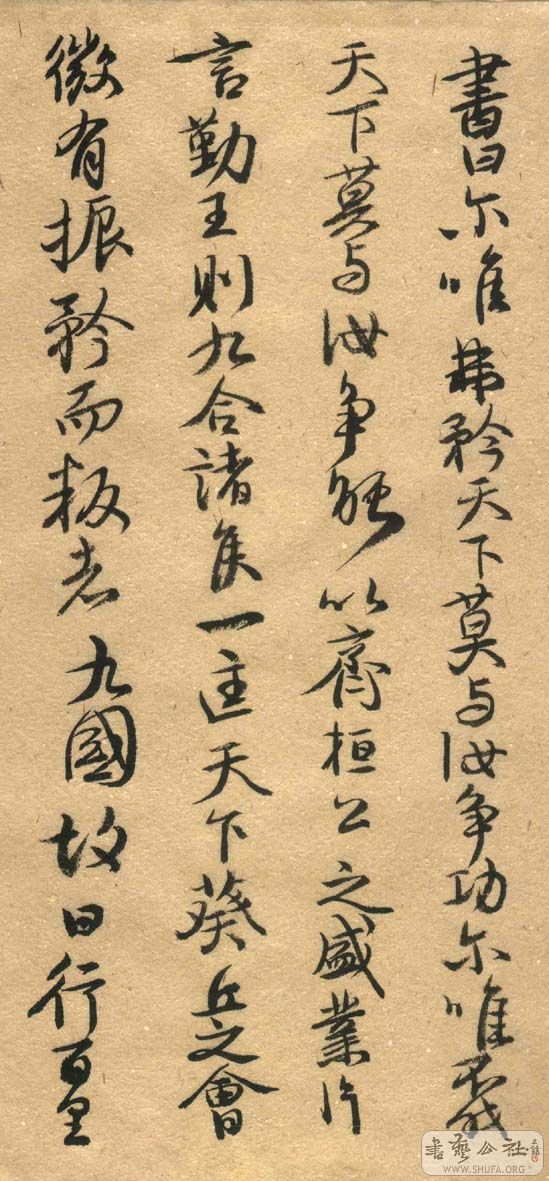 書曰尔唯弗矜天下莫与汝争功尔唯不伐
天下莫与汝争能以齊桓公之盛業片
言勤王則九合諸侯一匡天下葵丘之會
微有振矜而叛者九國故曰行百里
書藝公社
WWW.SHUFA.ORG